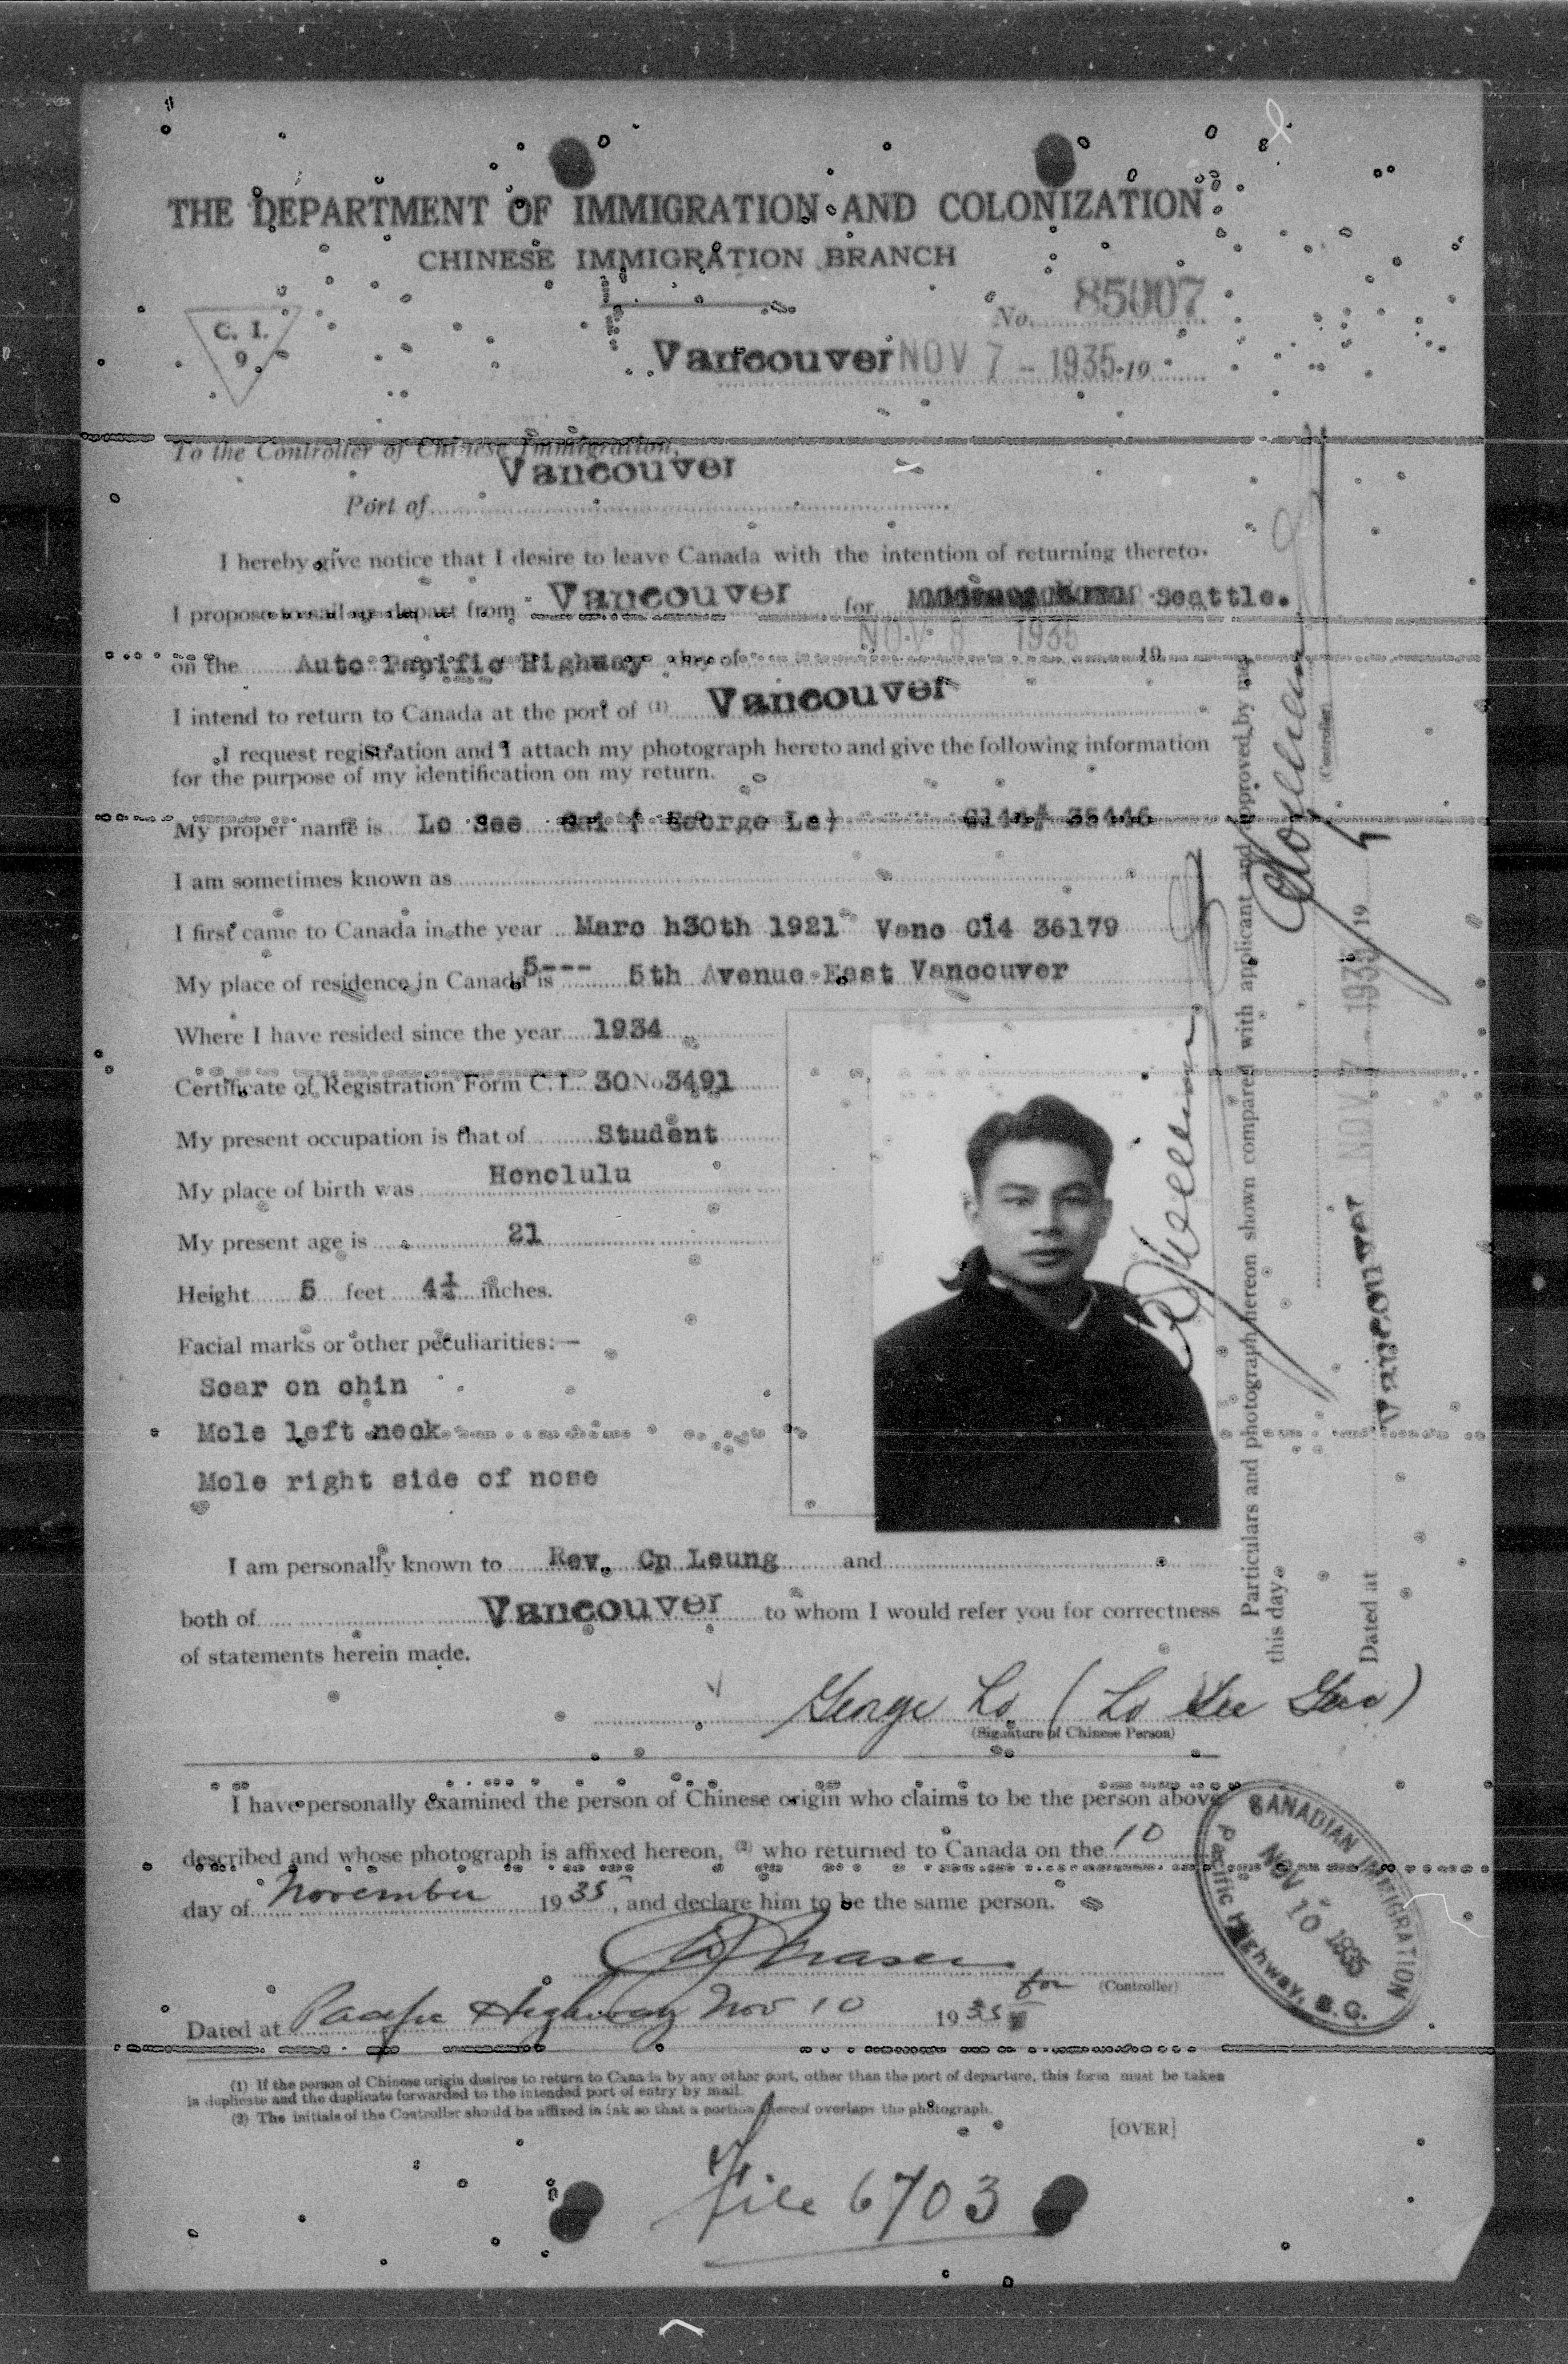 THE DEPARTMENT OF IMMIGRATION AND COLONIZATION
CHINESE IMMIGRATION BRANCH
C. I.
9
No. 85007
Vancouver NOV 7 - 1935 19
To the Controller of Chinese Immigration,
Vancouver
Port of
I hereby give notice that I desire to leave Canada with the intention of returning thereto.
I propose to sail or depart from Vancouver for Seattle.
NOV 8 1935
on the Auto Pacific Highway day of 19
I intend to return to Canada at the port of (1) Vancouver
I request registration and I attach my photograph hereto and give the following information
for the purpose of my identification on my return.
My proper name is Lo See Gai ( George Lo) CI44# 35446
I am sometimes known as
I first came to Canada in the year Marc h30th 1921 Vanc CI4 36179
My place of residence in Canada is 5--- 5th Avenue East Vancouver
Where I have resided since the year 1934
Certificate of Registration Form C.I. 30 No 3491
My present occupation is that of Student
My place of birth was Honolulu
My present age is 21
Height 5 feet 4¼ inches.
Facial marks or other peculiarities:—
Scar on chin
Mole left neck
Mole right side of nose
I am personally known to Rev. Cp Leung and
both of Vancouver to whom I would refer you for correctness
of statements herein made.
George Lo ( Lo See )
(Signature of Chinese Person)
Particulars and photograph hereon shown compared with applicant and approved by me
this day.
(Controller)
Dated at Vancouver NOV 7 - 1935 19
I have personally examined the person of Chinese origin who claims to be the person above
described and whose photograph is affixed hereon, (2) who returned to Canada on the 10
day of November 1935, and declare him to be the same person.
for (Controller)
Dated at Pacific Highway Nov 10 1935
CANADIAN IMMIGRATION
NOV 10 1935
Pacific Highway, B.C.
(1) If the person of Chinese origin desires to return to Canada by any other port, other than the port of departure, this form must be taken
in duplicate and the duplicate forwarded to the intended port of entry by mail.
(2) The initials of the Controller should be affixed in ink so that a portion thereof overlaps the photograph.
[OVER]
File 6703